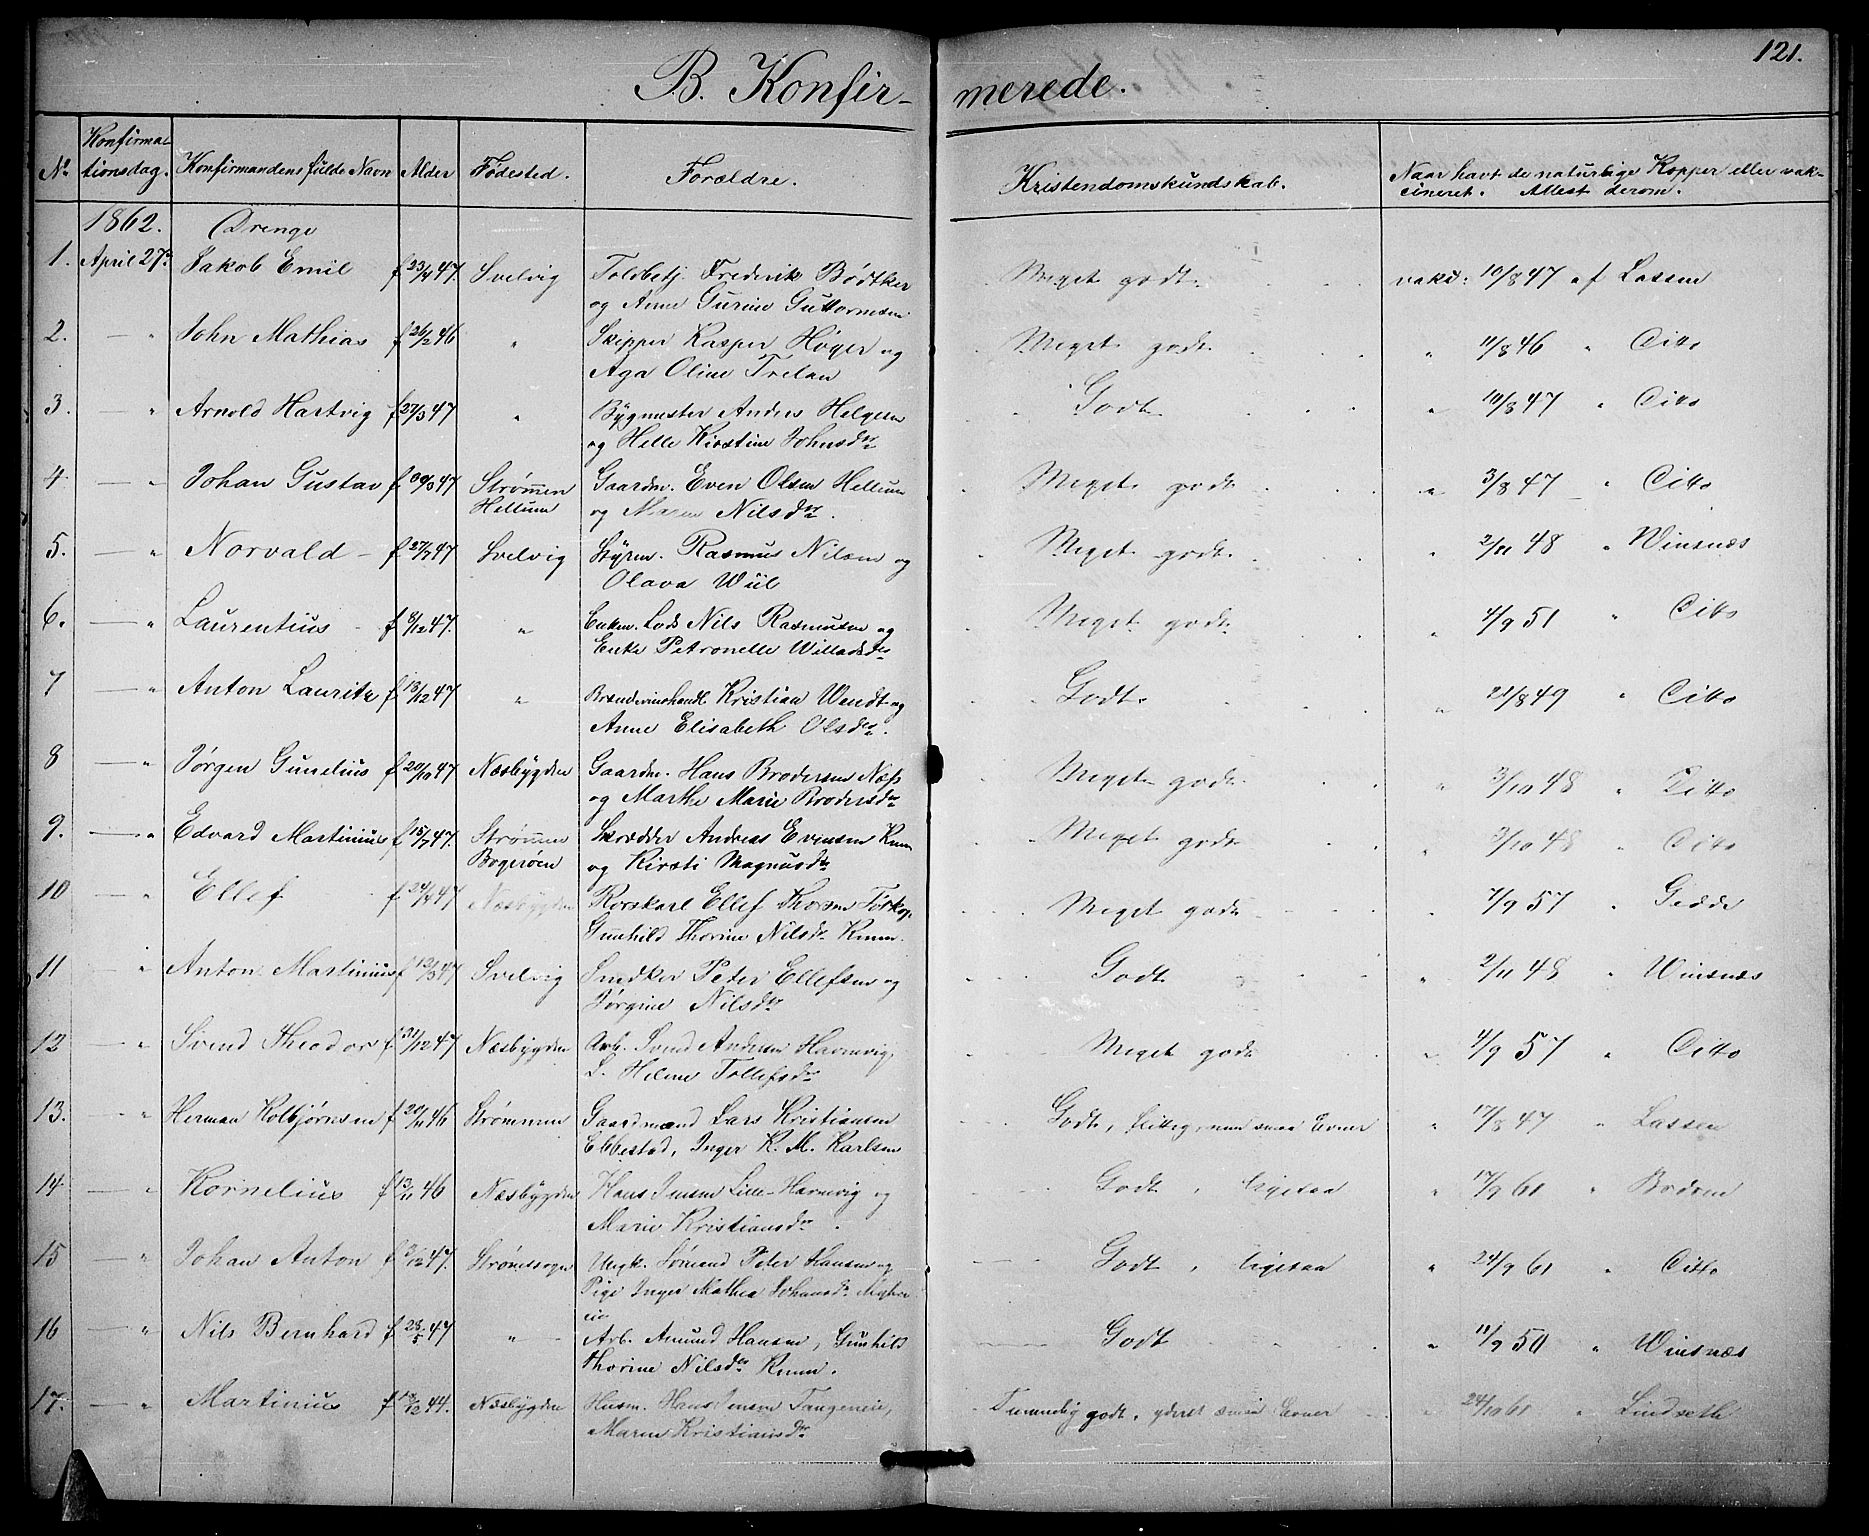 121.
B. Konfir- merede.
No. Konfirma- tionsdag. Konfirmandens fulde Navn Alder Fødested. Forældre. Kristendomskundskab. Naar havt de naturlige Kopper eller vak- cineret. Attest derom.
1862. Drenge
1. April 27de Jakob Emil f. 23/4 47. Svelvig Toldbetj. Frederik Bødtker Meget godt vakc: 10/8 47 af Lassen
og Anne Gurine Guttormsen.
2. — " John Mathias f. 26/2 46 " Skipper Kasper Høyer og Meget godt " 11/8 46 " Ditto
Aga Oline Trelan
3. — " Arnold Hartvig f. 27/3 47 " Bygmester Anders Helgesen Godt " 10/8 47 " Ditto
og Helle Kirstine Johnsdr
4. — " Johan Gustav f. 30/3 47 Strømmen Gaardm. Even Olsen Hellum Meget godt " 3/8 47 " Ditto
Hellum og Maren Nilsdr.
5. — " Norvald — f. 27/7 47 Svelvig Styrm. Rasmus Nilsen og Meget godt " 2/11 48 " Winsnæs
Olava Wiil
6. — " Laurentius - f. 8/12 47. " Enkem. Lods Nils Rasmusen og Meget godt " 4/9 51 " Ditto
Enke Petronelle Willadsdr
7 — " Anton Lauritz f. 13/12 47 " Brændevinshandl Kristian Wendt og Godt " 21/8 49 " Ditto
Anne Elisabeth Olsdr.
8 — " Jørgen Gunelius f. 20/10 47 Næsbygden Gaardm. Hans Brodersen Næss Meget godt " 3/10 48 " Ditto
og Marthe Marie Brodersdr
9. — " Edvard Martinius f. 15/7 47. Strømmen Skrædder Andreas Evensen Knem Meget godt " 3/10 48 " Ditto
Bogerøen og Kirsti Magnusdr
10 — " Ellef f. 24/4 47 Næsbygden Rorskarl Ellef Thorsen Torkop Meget godt " 7/9 57 " Gedde
Gunhild Thorine Nilsdr Knem.
11 — " Anton Martinius f. 12/3 47 Svelvig Snedker Peter Ellefsen og Godt " 2/11 48 " Winsnæs
Jørgine Nilsdr
12 — " Svend Theodor f. 31/12 47 Næsbygden Arb. Svend Andersen Havnevig, Meget godt " 4/9 57 " Ditto
L. Helene Tollefsdr
13. — " Herman Kolbjørnsen f. 20/11 46 Strømmen Gaardmand Lars Kristiansen Godt, flittig, men smaa Evner " 17/8 47 " Lassen
Ebbestad, Inger K. M. Karlsen
14 — " Kornelius f. 13/11 46 Næsbygden Hans Jensen Lille-Havnevig og Godt, ligesaa " 17/9 61 " Bodom
Marie Kristiansdr.
15 — " Johan Anton f. 3/12 47. Strømssogn Ungk. Sømand Peter Hansen og Godt, ligesaa " 24/9 61 " Ditto
Pige Inger Mathea Johansdr
16 — " Nils Bernhard f. 28/5 47 " Arb. Amund Hansen, Gunhild Godt " 11/9 50 " Winsnæs
Thorine Nilsdr Knem.
17. — " Martinius f. 18/12 44. Næsbygden Husm. Hans Jensen Tangeneie, Temmelig godt, yderst smaa Evner " 24/10 61 " Lindseth
Maren Kristiansdr